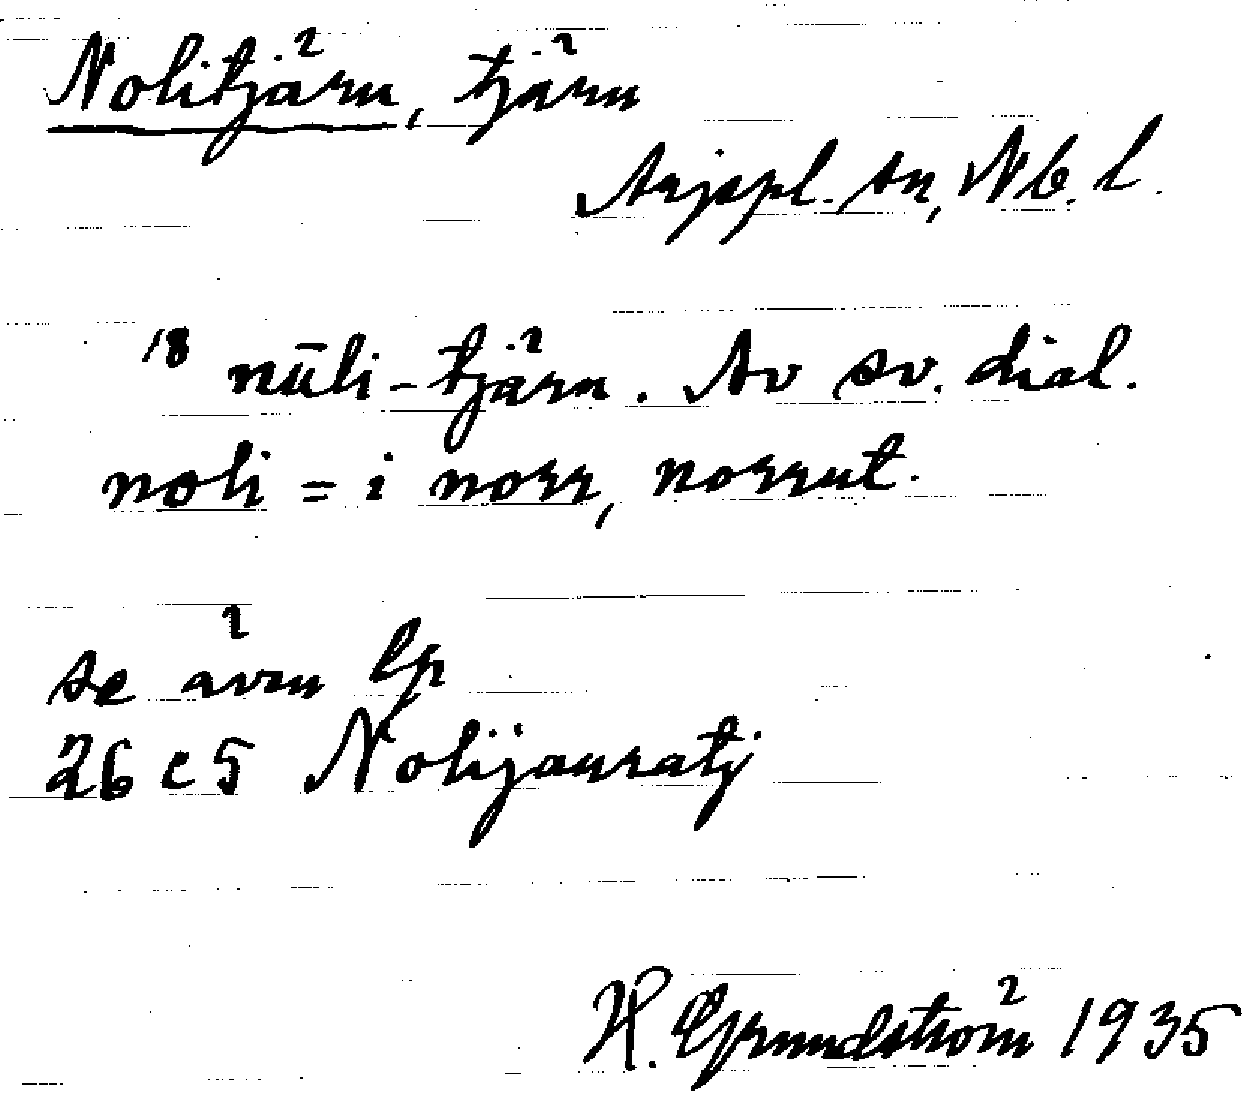 Nolitjärn, tjärn
Arjepl. sn, Nb. l.
18 nūli-tjärn. Av sv. dial.
noli = i norr, norrut.
se även lp
26 c 5 Nolijauratj
H. Grundström 1935